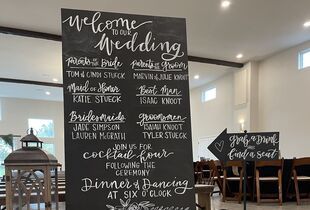 Welcome
TO OUR
Wedding
parents of the BRIDE
TOM & CINDI STUECK
parents of the GROOM
MARVIN & JULIE KNOOT
Maid of Honor
KATIE STUECK
Best Man
ISAAC KNOOT
Bridesmaids
JADE SIMPSON
LAUREN McGRATH
Groomsmen
ISAIAH KNOOT
TYLER STUECK
JOIN US FOR
cocktail hour
FOLLOWING THE
CEREMONY
Dinner & Dancing
AT SIX O'CLOCK
Grab a Drink
find a Seat